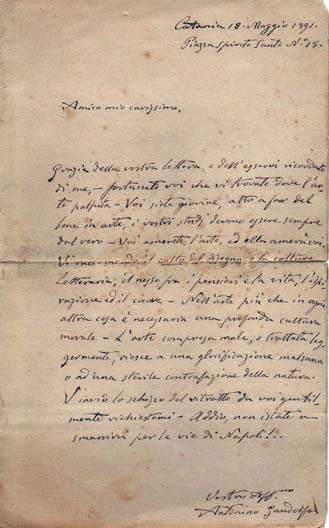 Catania 18. Maggio 1891.
Piazza Spirito Santo N.º 18.
Amico mio carissimo,
Grazie della vostra lettera, e dell'esservi ricordato
di me, – fortunato voi che vi trovate dove l'ar
te palpita – Voi siete giovine, atto a far del
bene in arte, i vostri studj devono essere sempre
dal vero – Voi amerete l'arte, ed ella amerà voi.
Vi raccomando il culto del disegno e la coltura
letteraria, il nesso fra i pensieri e la vita, l'ispi
razione ed il cuore. – Nell'arte più che in ogni
altra cosa è necessaria una profonda cultura
morale – L'arte compresa male, o trattata leg
germente, riesce a una glorificazione malsana
o ad una sterile contrafazione della natura.
V'invio lo schizzo del ritratto da voi gentil
mente richiestomi – Addio, non istate a
smarrirvi per le vie di Napoli!..
Vostro Aff.mo
Antonino Gandolfo